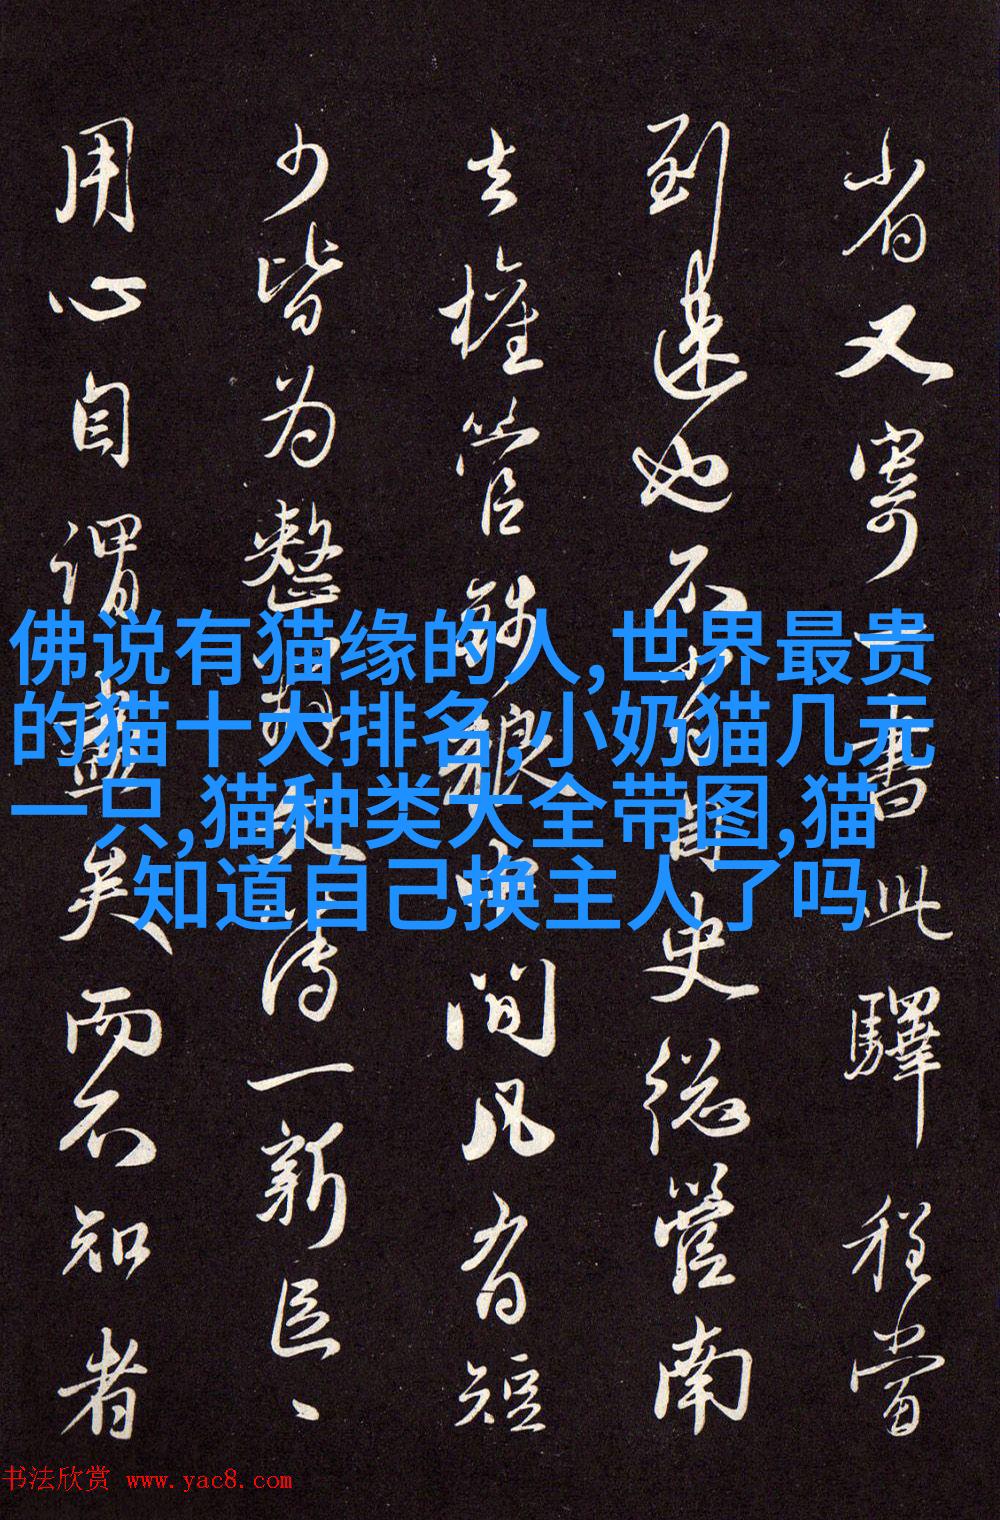 省又寄一书此驛程当
到速也不肯自史总管南
去權管銭粮中間凡有短
少皆为整一新臣、
用心自谓盡矣而不知者
佛说有猫缘的人,世界最贵
的猫十大排名,小奶猫几元
一只,猫种类大全带图,猫
知道自己换主人了吗
书法欣赏 www.yac8.com